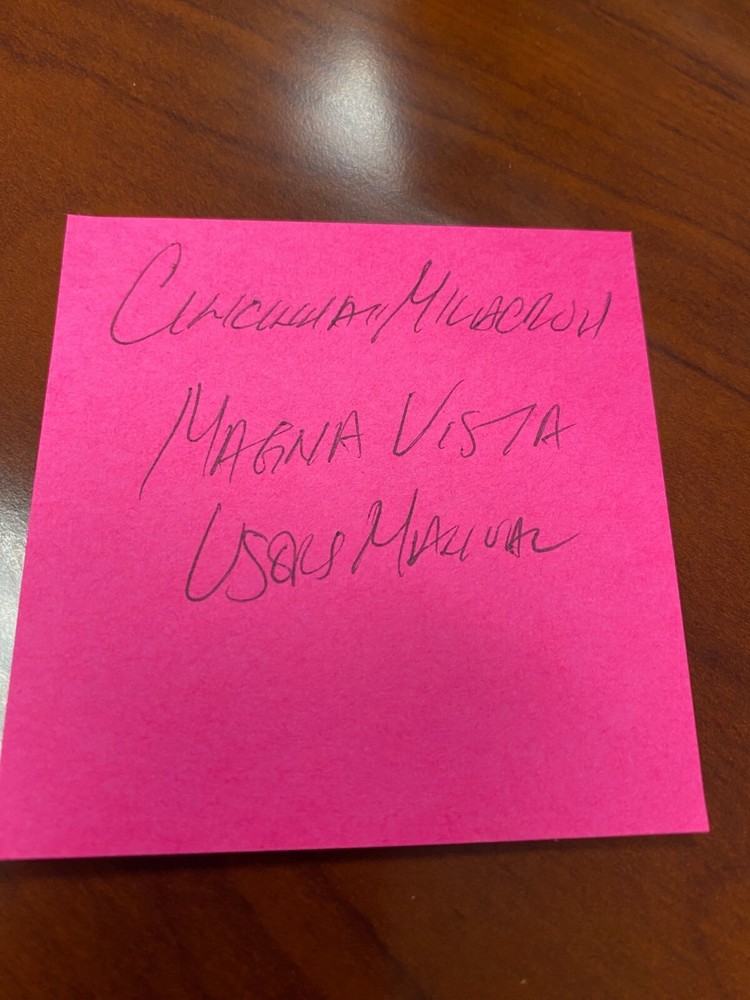 Cincinnati Milacron
Magna Vista
Users Manual